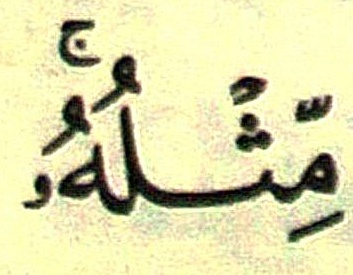 مِّثْلُهُۥۚ